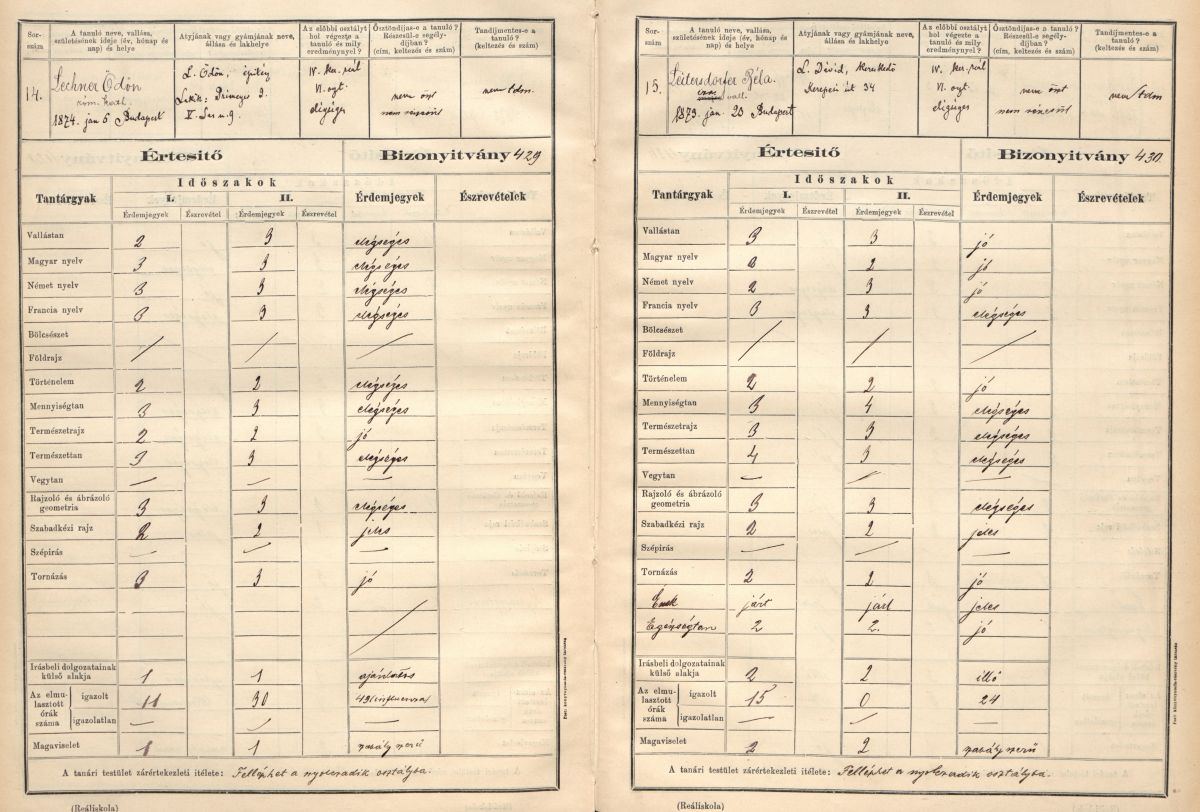 Sor-szám
A tanuló neve, vallása, születésének ideje (év, hónap és nap) és helye
Atyjának vagy gyámjának neve, állása és lakhelye
Az előbbi osztályt hol végezte a tanuló és mily eredménynyel?
Ösztöndíjas-e a tanuló? Részesül-e segély-díjban? (cím, keltezés és szám)
Tandíjmentes-e a tanuló? (keltezés és szám)
14.
Lechner Ödön
róm. kath.
1874. jan 5 Budapest
L. Ödön, építész
Lakik:
IV. ker. reál
VI. oszt.
elégséges
nem öszt
nem részesül
nem tdm.
Értesitő
Bizonyitvány 429
Tantárgyak
Időszakok
I. II.
Érdemjegyek Észrevétel Érdemjegyek Észrevétel
Érdemjegyek
Észrevételek
Vallástan 2 3 elégséges
Magyar nyelv 3 3 elégséges
Német nyelv 3 3 elégséges
Francia nyelv 3 3 elégséges
Bölcsészet
Földrajz
Történelem 2 2 elégséges
Mennyiségtan 3 3 elégséges
Természetrajz 2 2 jó
Természettan 3 3 elégséges
Vegytan — — —
Rajzoló és ábrázoló geometria 3 3 elégséges
Szabadkézi rajz 2 2 jeles
Szépirás — — —
Tornázás 3 3 jó
Irásbeli dolgozatainak külső alakja 1 1
Az elmulasztott órák száma
igazolt 11 30
igazolatlan — — —
Magaviselet 1 1 szabályszerű
A tanári testület zárértekezleti itélete: Felléphet a nyolczadik osztályba.
(Reáliskola)
Sor-szám
A tanuló neve, vallása, születésének ideje (év, hónap és nap) és helye
Atyjának vagy gyámjának neve, állása és lakhelye
Az előbbi osztályt hol végezte a tanuló és mily eredménynyel?
Ösztöndíjas-e a tanuló? Részesül-e segély-díjban? (cím, keltezés és szám)
Tandíjmentes-e a tanuló? (keltezés és szám)
15.
Leitersdorfer Béla.
izr. vall.
1873. jan. 20 Budapest
L. Dávid, kereskedő
Kerepesi út 34
IV. ker. reál
VI. oszt.
elégséges
nem öszt
nem részesül
nem tdm
Értesitő
Bizonyitvány 430
Tantárgyak
Időszakok
I. II.
Érdemjegyek Észrevétel Érdemjegyek Észrevétel
Érdemjegyek
Észrevételek
Vallástan 3 3 jó
Magyar nyelv 3 2 jó
Német nyelv 2 3 jó
Francia nyelv 3 3 elégséges
Bölcsészet
Földrajz
Történelem 2 2 jó
Mennyiségtan 3 4 elégséges
Természetrajz 3 3 elégséges
Természettan 4 3 elégséges
Vegytan — — —
Rajzoló és ábrázoló geometria 3 3 elégséges
Szabadkézi rajz 2 2 jeles
Szépirás — — —
Tornázás 2 2 jó
Ének járt járt jeles
Egészségtan 2 2. jó
Irásbeli dolgozatainak külső alakja 2 2 illő
Az elmulasztott órák száma
igazolt 15 0 24
igazolatlan — — —
Magaviselet 2 2 szabályszerű
A tanári testület zárértekezleti itélete: Felléphet a nyolczadik osztályba.
(Reáliskola)